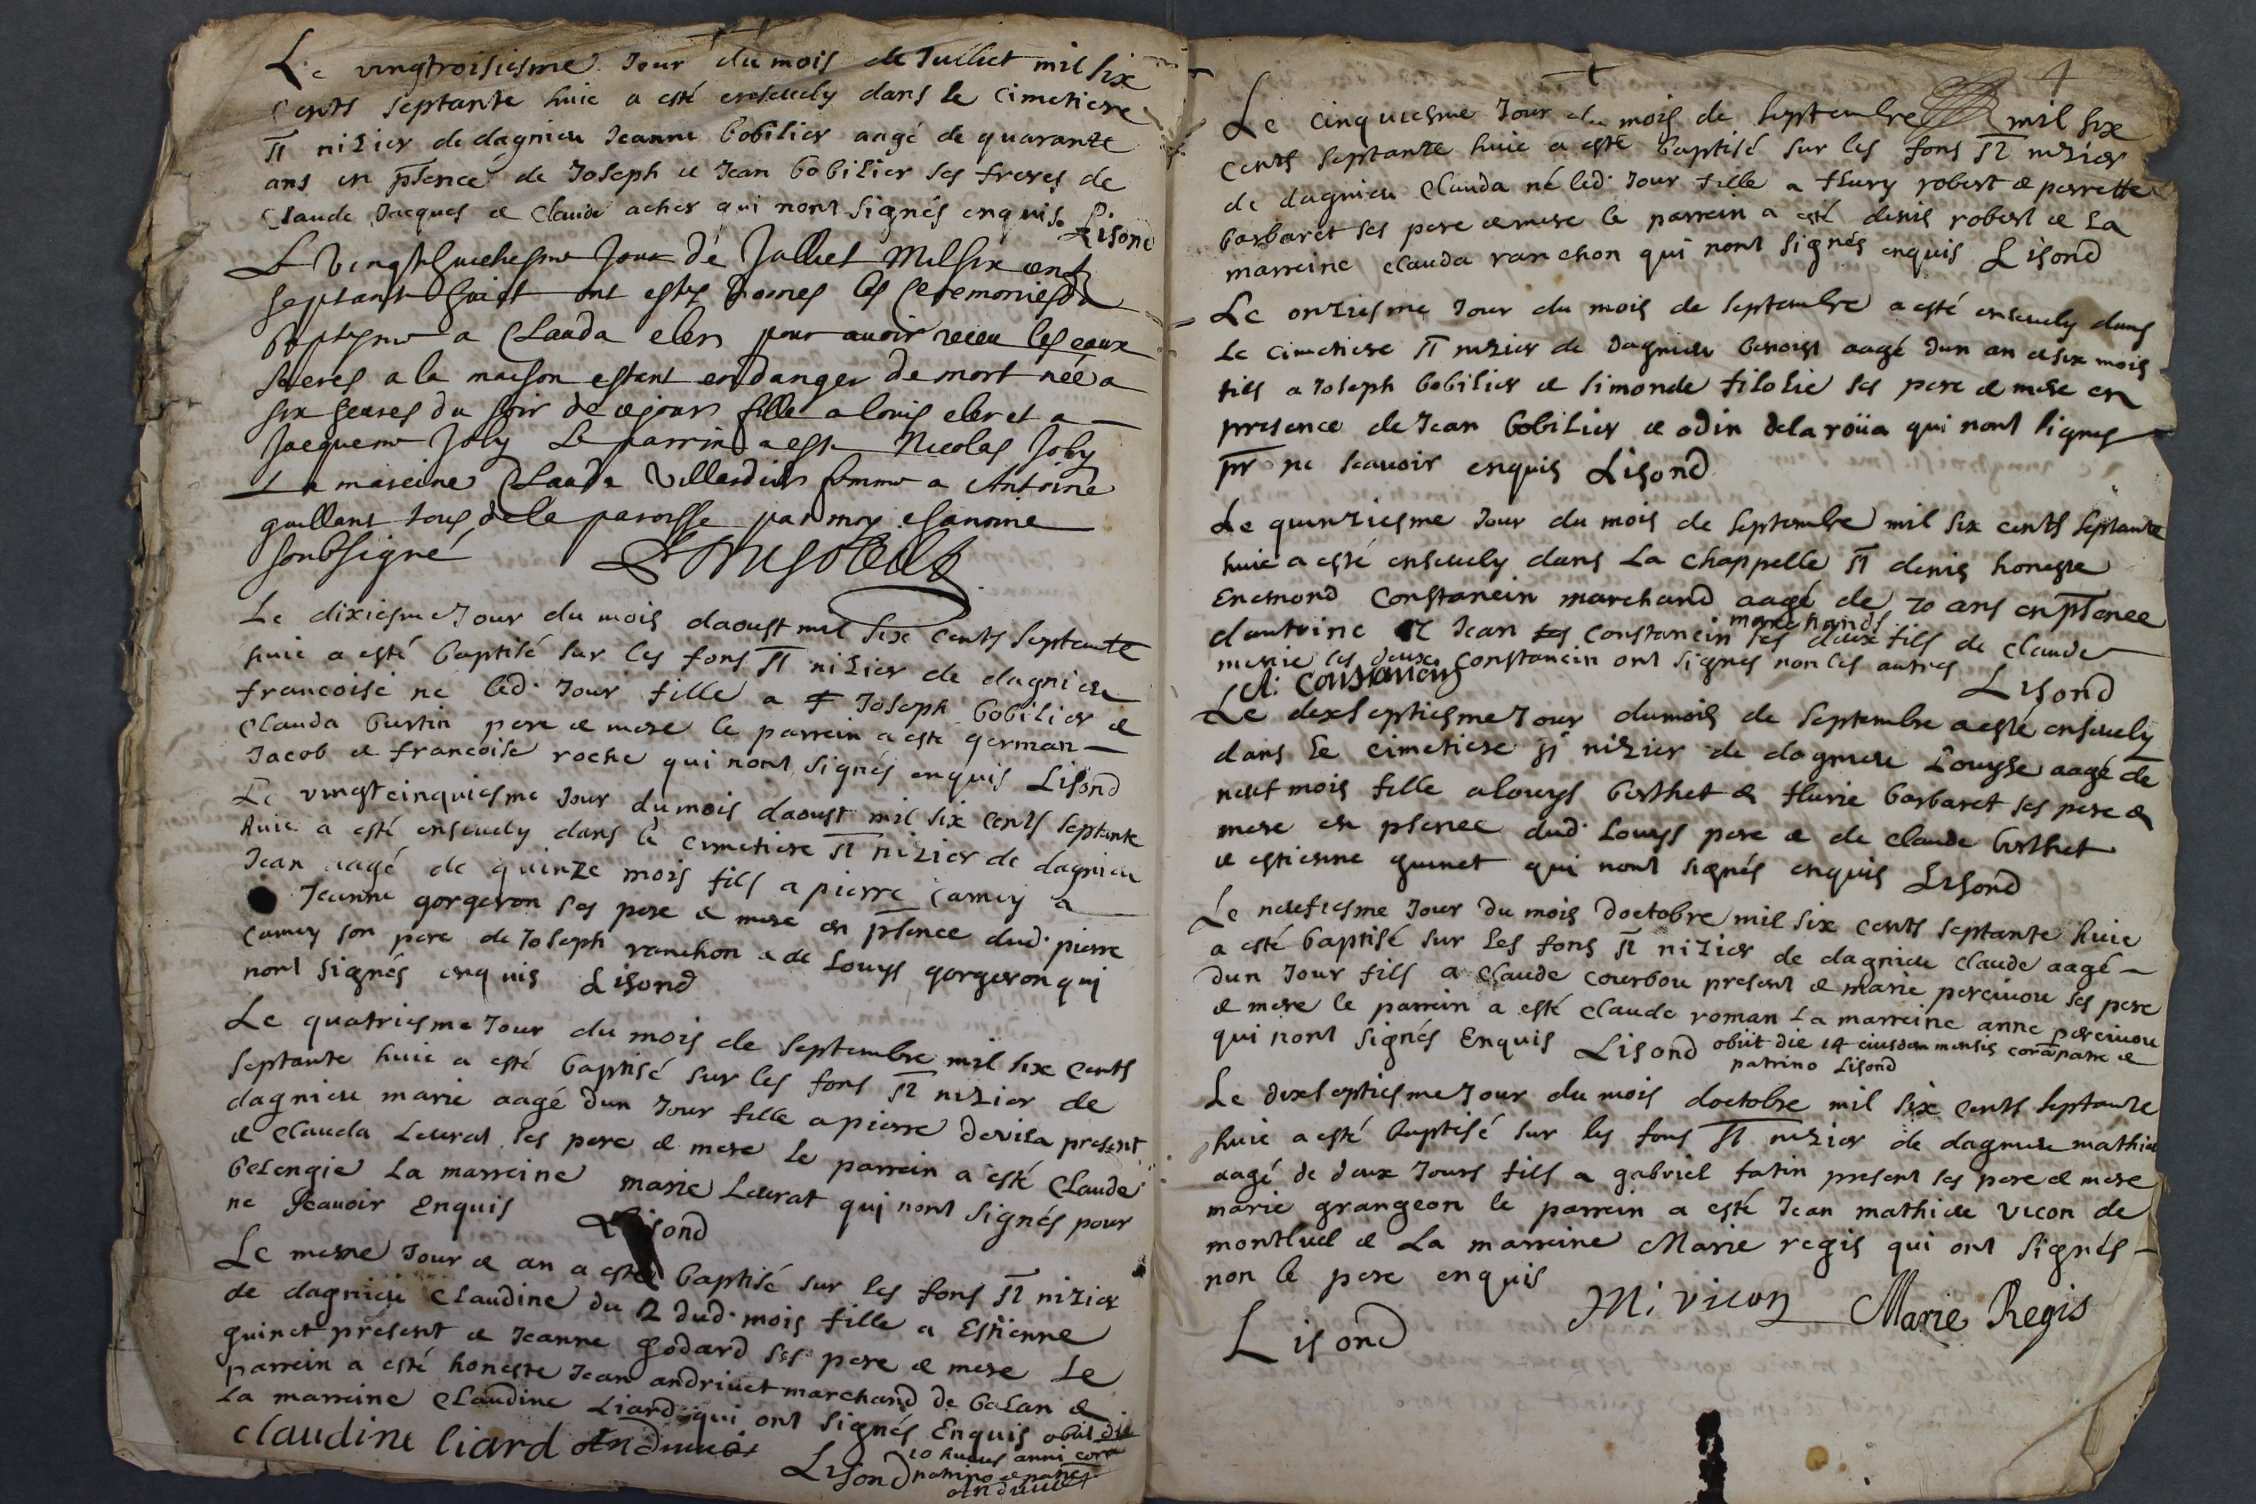 Le vingtroisiesme Jour du mois de Julliet mil six
cents septante huic a esté ensevely dans le cimetiere
st nizier de dagnieu Jeanne bobilier aagé de quarante
ans en psence de Joseph et Jean bobilier ses freres de
Claude Jacques et Claude acher qui nont signés enquis Lisond
Le vingt huictiesme Jour de Julliet mil six cents
septante huict ont estes donnes les ceremonies du
baptesme a Clauda eler pour avoir receu les eaux
a la maison estant en danger de mort née a
six heures du soir de ce jour fille a louis eler et a
Jacqueme Joly Le parrin a este Nicolas Joly
La mareine Clauda Villerdin femme a Antoine
guillant tous de la paroisse par moy chanoine
soubsigné
Le dixiesme Jour du mois daoust mil six cents septante
huic a esté baptisé sur les fons st nizier de dagnieu
francoise né led. Jour fille a Joseph bobilier et
Clauda burtin pere et mere le parrein a esté german
Jacob et francoise roche qui nont signés enquis Lisond
Le vingt cinquiesme Jour du mois daoust mil six cents septante
huic a esté ensevely dans le cimetiere st nizier de dagnieu
Jean aagé de quinze mois fils a pierre camey a
Jeanne gorgeron ses pere et mere en psence dud. pierre
camey son pere de Joseph ranchon et de Louys gorgeron qui
nont signés enquis Lisond
Le quatriesme Jour du mois de septembre mil six cents
septante huic a esté baptisé sur les fons st nizier de
dagnieu marie aagé dun Jour fille a pierre devila present
et Clauda Leurat ses pere et mere le parrein a esté Claude
belengie La marreine marie Leurat qui nont signés pour
ne scavoir Enquis Lisond
Le mesne Jour et an a esté baptisé sur les fons st nizier
de dagnieu Claudine du 2 dud. mois fille a Estienne
guinet present et Jeanne godard ses pere et mere Le
parrein a esté honeste Jean andrivet marchand de balan et
La marreine Claudine Liard qui ont signés Enquis obiit die
10 huius anni
claudine liard
Lisond patrino et patre
Le cinquiesme Jour du mois de septembre mil six
cents septante huic a esté baptisé sur les fons st nizier
de dagnieu Clauda né led. Jour fille a flury robert et perrette
barbaret ses pere et mere le parrein a esté denis robert et La
marreine Clauda ranchon qui nont signés enquis Lisond
Le onziesme Jour du mois de septembre a esté ensevely dans
Le cimetiere st nizier de dagnieu benoist aagé dun an et six mois
fils a Joseph bobilier et simonde filolie ses pere et mere en
presence de Jean bobilier et odin delaroüa qui nont signes
pr ne scavoir enquis Lisond
Le quinziesme Jour du mois de septembre mil six cents septante
huic a esté ensevely dans La chappelle st denis honeste
Enemond Constancin marchand aagé de 70 ans en psence
dantoine et Jean Constancin marchands ses deux fils de Claude
les deux Constancin ont signes non les autres
Lisond
A: Constancin
Le dexseptiesme Jour du mois de septembre a esté ensevely
dans Le cimetiere st nizier de dagnieu Louyse aagé de
neuf mois fille a louys berthet et flurie barbaret ses pere et
mere en psence dud. Louys pere et de Claude berthet
et estienne guinet qui nont signés enquis Lisond
Le neufiesme Jour du mois doctobre mil six cents septante huic
a esté baptisé sur les fons st nizier de dagnieu Claude aagé
dun Jour fils a Claude courbou present et marie percivou ses pere
et mere le parrein a esté Claude roman La marreine anne percivou
qui nont signés Enquis Lisond obiit die 14 eiusdem mensis corã patre et
patrino Lisond
Le dexseptiesme Jour du mois doctobre mil six cents septante
huic a esté baptisé sur les fons st nizier de dagnieu mathieu
aagé de deux Jours fils a gabriel fatin present ses pere et mere
marie grangeon le parrein a esté Jean mathieu vicon de
montluel et La marreine Marie regis qui ont signés
non le pere enquis
Mi vicon Marie Regis
Lisond